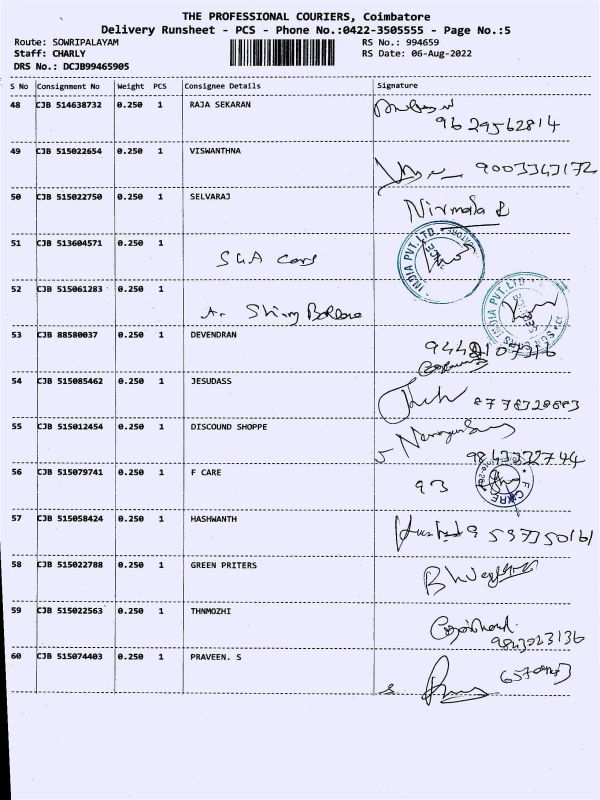 THE PROFESSIONAL COURIERS, Coimbatore
Delivery Runsheet - PCS - Phone No.:0422-3505555 - Page No.:5
Route: SOWRIPALAYAM RS No.: 994659
Staff: CHARLY RS Date: 06-Aug-2022
DRS No.: DCJB99465905
S No Consignment No Weight PCS Consignee Details Signature
48 CJB 514638732 0.250 1 RAJA SEKARAN
9629562814
49 CJB 515022654 0.250 1 VISWANTHNA
9003343172
50 CJB 515022750 0.250 1 SELVARAJ
Nirmala
51 CJB 513604571 0.250 1
INDIA PVT.LTD.
52 CJB 515061283 0.250 1
INDIA PVT.LTD
53 CJB 88580037 0.250 1 DEVENDRAN
54 CJB 515085462 0.250 1 JESUDASS
55 CJB 515012454 0.250 1 DISCOUND SHOPPE
9843332744
56 CJB 515079741 0.250 1 F CARE
93
F CARE
57 CJB 515058424 0.250 1 HASHWANTH
58 CJB 515022788 0.250 1 GREEN PRITERS
59 CJB 515022563 0.250 1 THNMOZHI
9843023136
60 CJB 515074403 0.250 1 PRAVEEN. S